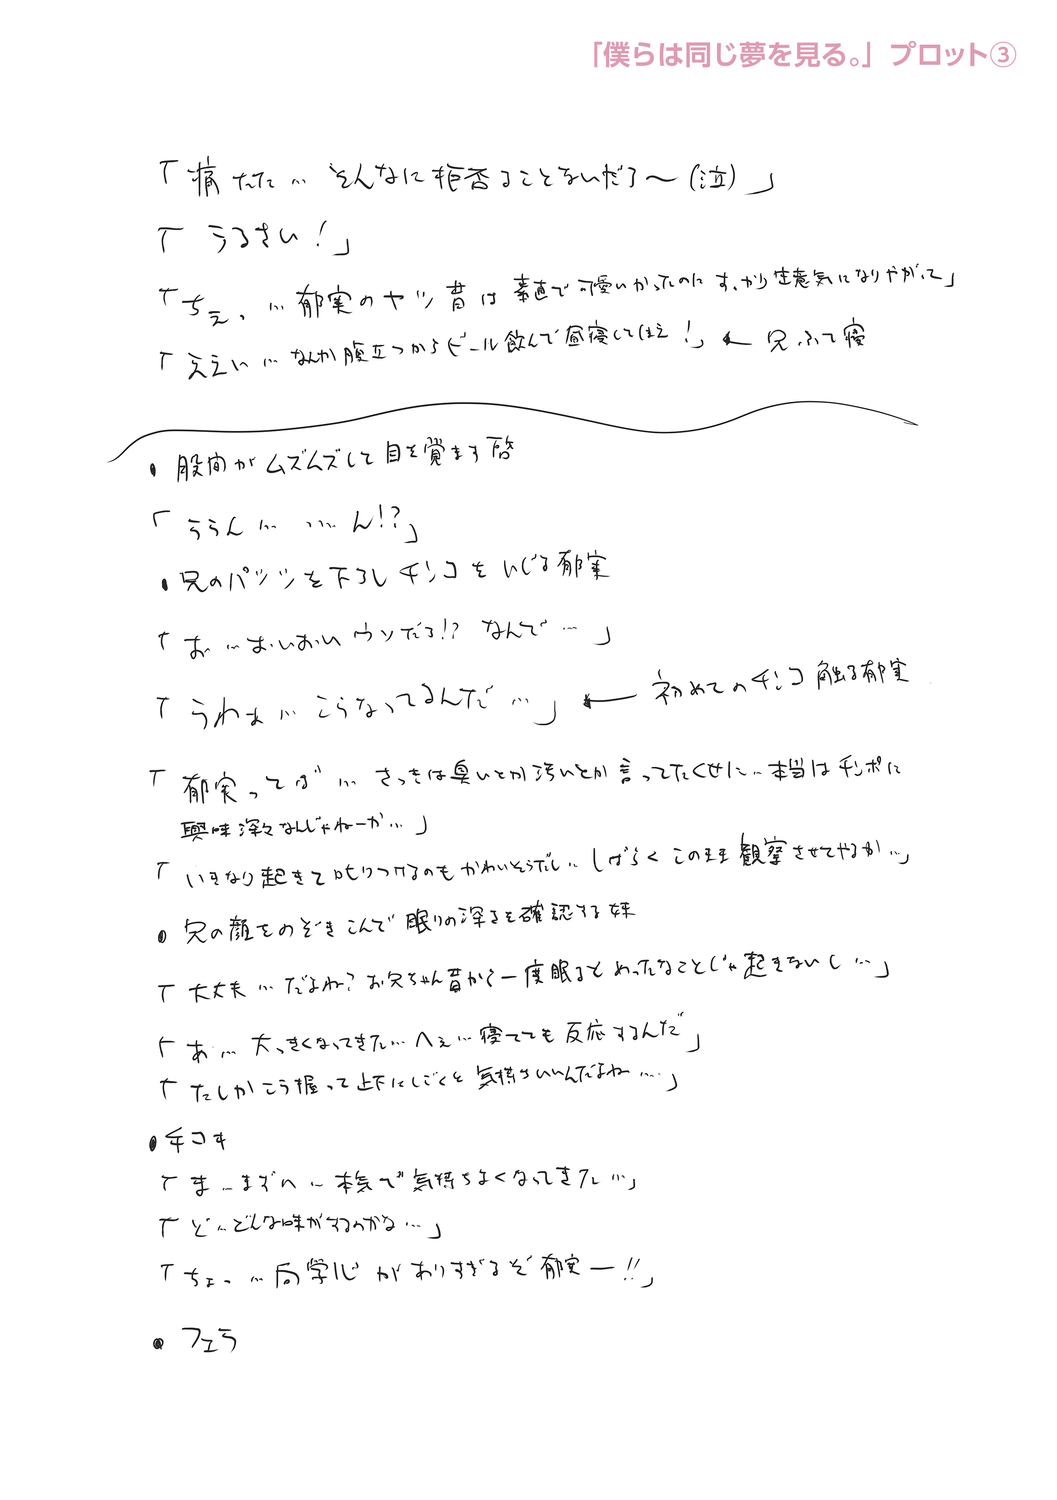 「僕らは同じ夢を見る。」プロット③
「痛たた… そんなに拒否ることないだろ〜(泣)」
「うるさい!」
「ちぇっ …郁実のヤツ昔は素直で可愛いかったのにすっかり生意気になりやがって」
「ええい…なんか腹立つからビール飲んで昼寝してしまえ!」← 兄ふて寝
●股間がムズムズして目を覚ます啓
「ううん… …ん!?」
●兄のパンツを下ろしチンコをいじる郁実
「お…おいおいウソだろ!? なんで…」
「うわぁ…こうなってるんだ…」← 初めてのチンコ触る郁実
「郁実ってば…さっきは臭いとか汚いとか言ってたくせに…本当はチンポに
興味深々なんじゃねーか…」
「いきなり起きて叱りつけるのもかわいそうだし…しばらくこのまま観察させてやるか…」
●兄の顔をのぞきこんで眠りの深さを確認する妹
「大丈夫…だよね?お兄ちゃん昔から一度眠るとめったなことじゃ起きないし…」
「あ…大っきくなってきた…へぇ…寝てても反応するんだ」
「たしかこう握って上下にしごくと気持ちいいんだよね…」
●手コキ
「ま…まずい…本気で気持ちよくなってきた…」
「ど…どんな味がするのかな…」
「ちょっ…向学心がありすぎるぞ郁実ー!!」
●フェラ